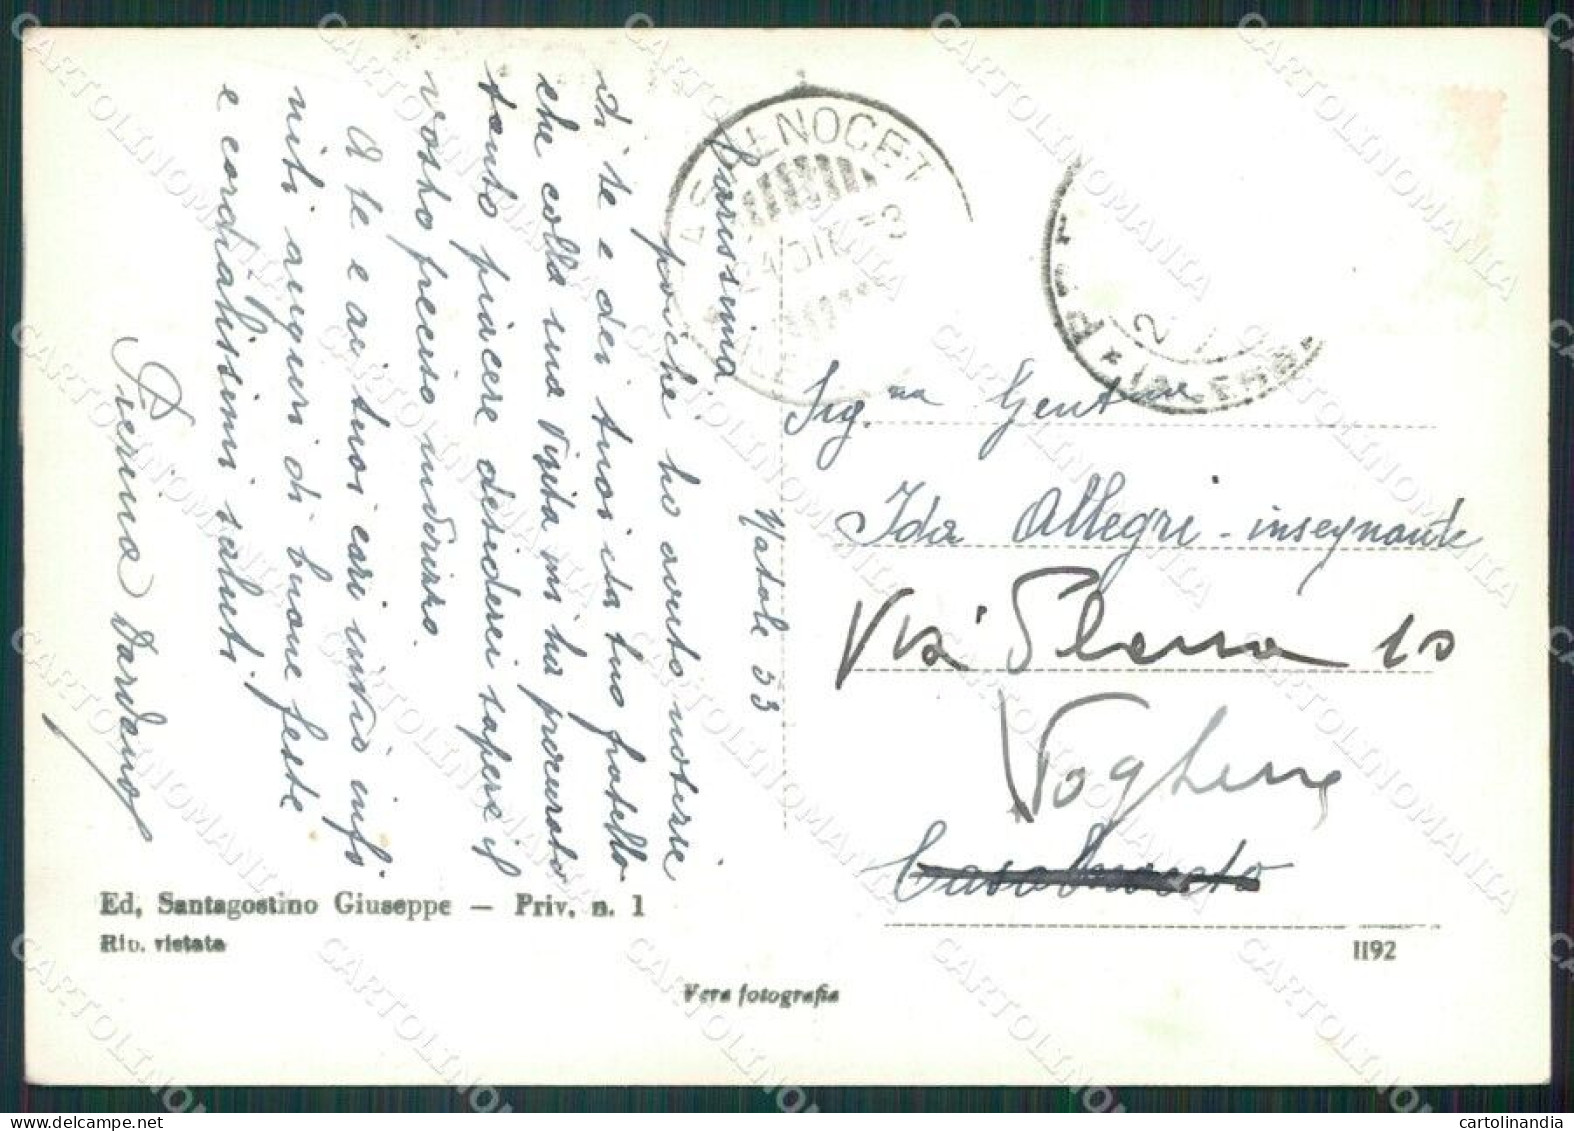 Natale 53
Carissima
poiché ho avuto notizie
di te e dei tuoi ita tuo fratello
che colla sua visita mi ha procurato
tanto piacere desiderei sapere il
vostro preciso indirizzo.
A te e ai tuoi cari invio infi-
niti auguri di buone feste
e cordialissimi saluti.
Pierina Dardano
ASALNOCET
24 DIC 53
Sig.na Gent.ma
Ida Allegri - insegnante
Via Plana 10
Voghera
Casalnoceto
Ed, Santagostino Giuseppe — Priv. n. 1
Rip. vietata
1192
Vera fotografia
CARTOLINOMANIA
cartolinandia